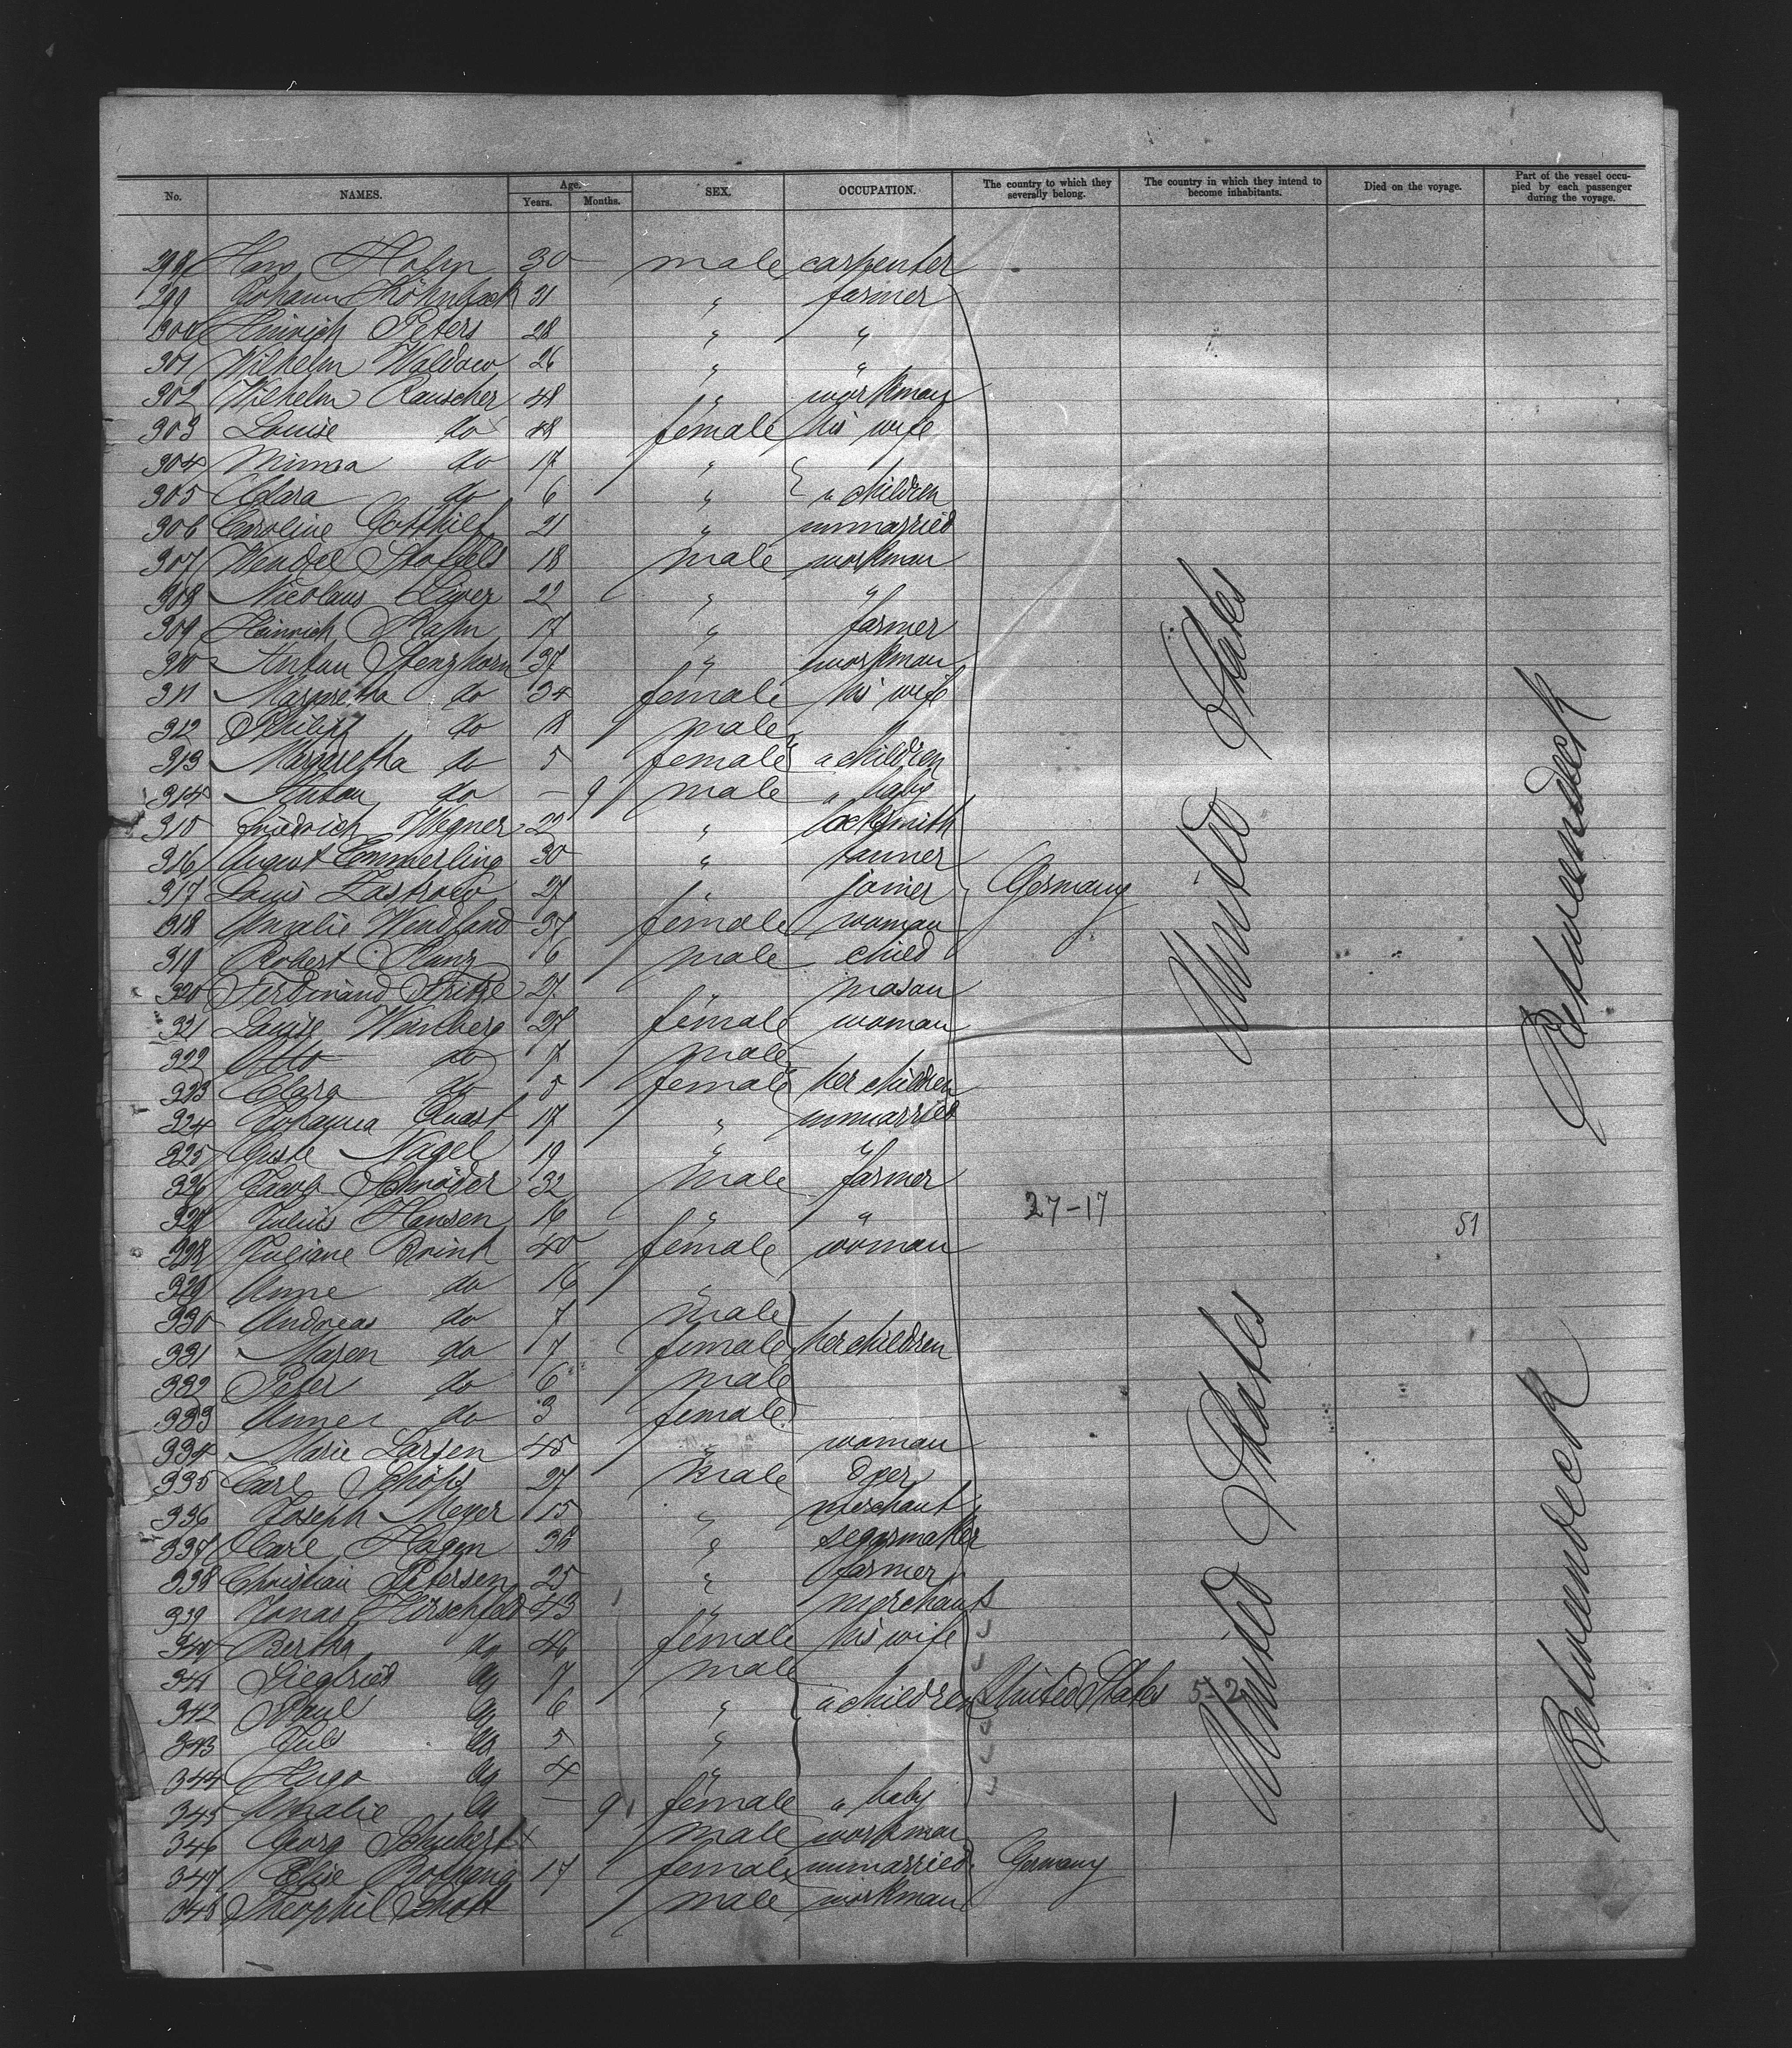 No. NAMES. Age. Years. Months. SEX. OCCUPATION. The country to which they severally belong. The country in which they intend to become inhabitants. Died on the voyage. Part of the vessel occupied by each passenger during the voyage.
298 Hans 30 male carpenter
299 Johann 31 " farmer
300 Heinrich Peters 28 " "
301 Wilhelm Waldow 26 " "
302 Wilhelm Rauscher 48 " workman
303 Louise do 48 female his wife
304 Minna do 17 "
305 Clara do 6 " " children
306 Caroline Gotthilf 21 " unmarried
307 Wendel Stoffels 18 male workman
308 Nicolaus 22 " "
309 Heinrich Rahn 17 " farmer
310 Anton Stenzhorn 37 " workman
311 Margretha do 34 female his wife
312 Philipp do 8 male
313 Margretha do 5 female " children
314 Anton do — 9 male " baby
315 Friedrich Wegner 22 " locksmith
316 August Emmerling 30 " tanner
317 Louis Zastrow 27 " joiner Germany
318 Amalie Wendland 37 female woman
319 Robert Kunz 6 male child
320 Ferdinand Fritze 27 " mason
321 Louise Weinberg 27 female woman
322 Otto do 7 male
323 Clara do 5 female her children
324 Johanna Quast 17 " unmarried
325 Nagel 19 " "
326 Jacob Schröder 32 male farmer
327 Julius Hansen 16 " " 27-17 51
328 Juliane Brink 40 female woman
329 Anne do 16 "
330 Andreas do 7 male
331 Maren do 7 female her children
332 Peter do 6 male
333 Anne do 3 female
334 Marie Larsen 45 " woman
335 Carl Schöps 27 male dyer
336 Joseph Meyer 15 " merchant
337 Carl Hagen 38 " segarmaker
338 Christian Petersen 25 " farmer
339 Jonas Hirschfeld 43 " merchant
340 Bertha do 46 female his wife
341 Siegfried do 7 male
342 Paul do 6 " " children United States 5-2
343 Juls do 5 "
344 Hugo do 4 "
345 Amalie do — 9 female " baby
346 Georg Schubert male workman
347 Elise 17 female unmarried Germany
348 Theophil Schott male workman
United States
United States
Betweendeck
Betweendeck